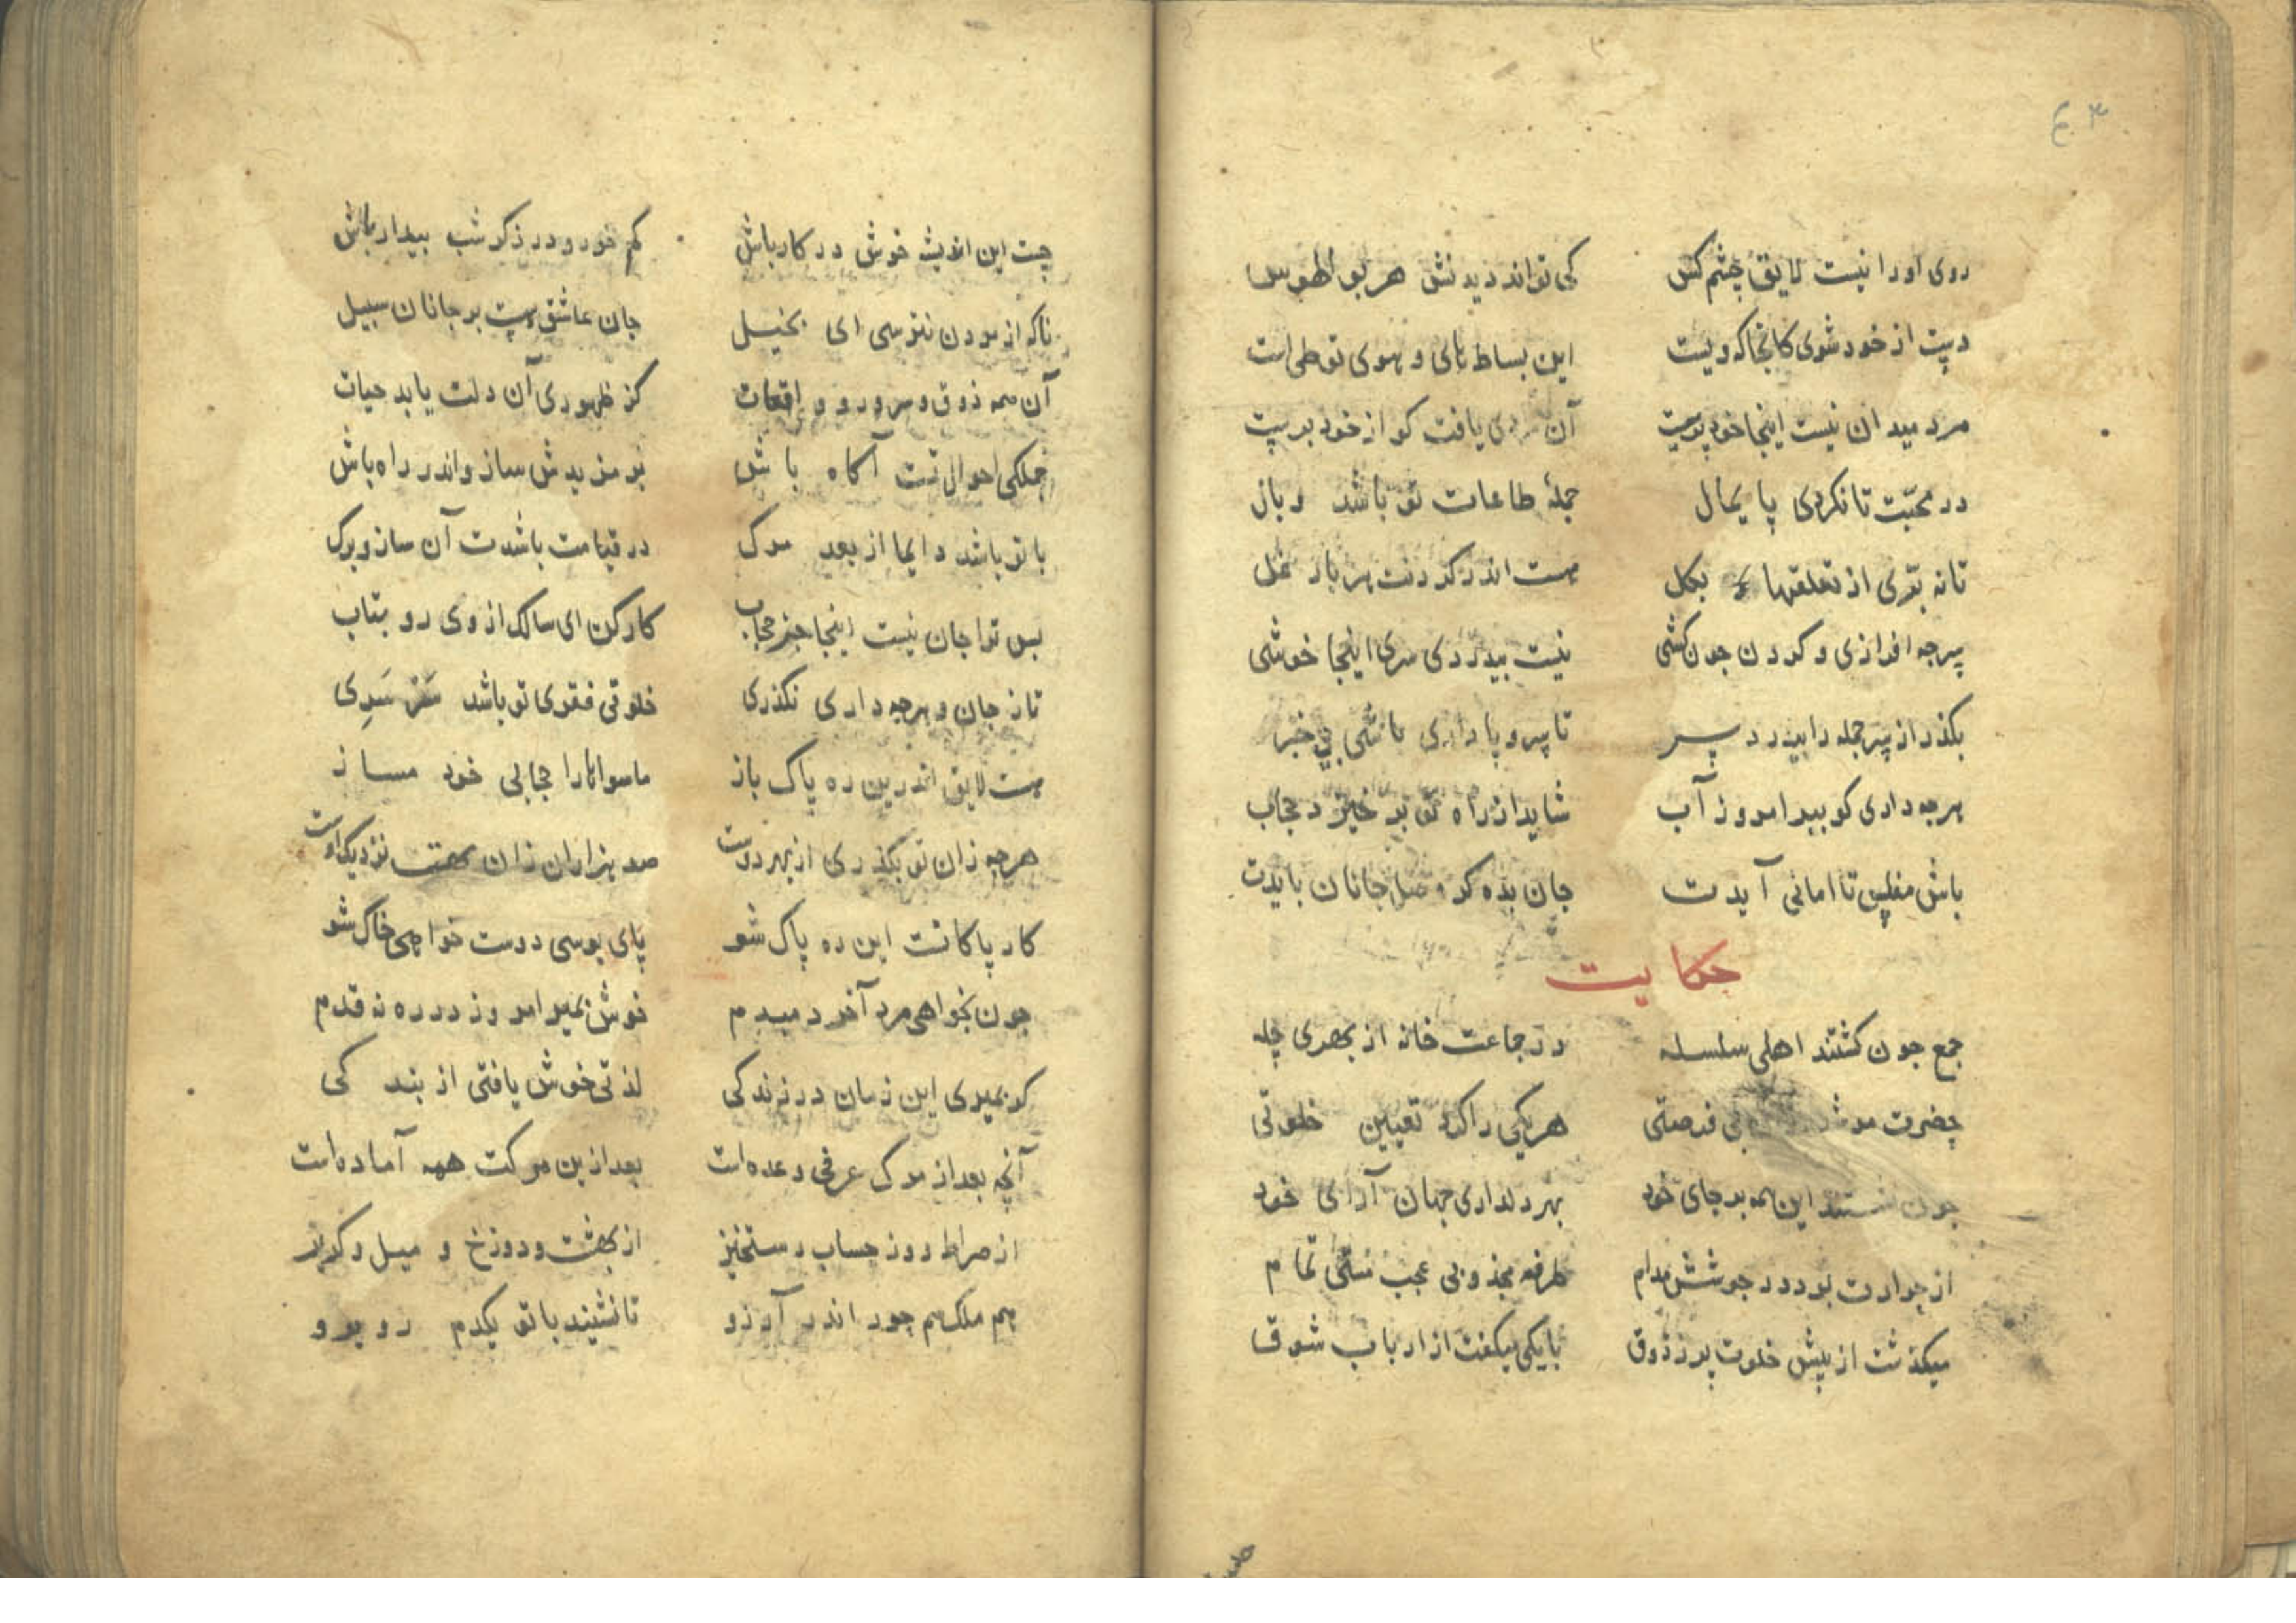 روی او را نیست لایق چشم کس کی تواند دیدنش هر بو الهوس
دست از خود شوی کانجا که ویست این بساط های و هوی تو طی است
مرد میدان نیست اینجا خود پرست آن یافت کو از خود برست
در محبت تا نکردی پایمال جملهٔ طاعات تو باشد وبال
تا نه بتری از تعلقها بکل هست اندر کردنت هر بار غل
سرجه افرازی و کردن جون کشی نیست بیدردی سری اینجا خوشی
بکذر از سر جمله را بین درد سر تا سر و پا داری باشی بی خبر
هرجه داری کو ببر امروز آب شاید از راه تو بر خیزد حجاب
باش مفلس تا امانی آیدت جان بده کر وصل جانان بایدت
حکایت
جمع جون کشتند اهلی سلسله در جماعت خانه از بهری چله
حضرت فرصتی هر یکی را کرد تعیین خلوتی
جون این همه بر جای خود بهر دلداری جهان آرای خود
از حرارت بود در جوشش مدام طرفه مجذوبی عجب مستی تمام
میکذشت از پیش خلوت پر ز ذوق با یکی میکفت از ارباب شوق
چست این اندیشه خوش در کار باش کم خور و در ذکر شب بیدار باش
تا که از مردن نترسی ای بخیل جان عاشق هست بر جانان سبیل
آن همه ذوق و سرور و واقعات کز ظهوری آن دلت یابد حیات
جملکی احوال تست آکاه باش بر مزیدش ساز و اندر راه باش
با تو باشد دایما از بعد مرک در قیامت باشدت آن ساز و برک
بس ترا جان نیست اینجا جز حجاب کار کن ای سالک از وی رو بتاب
تا ز جان و هرجه داری نکذری خلوتی فقری تو باشد سَرْسَرِی
هست لایق اندرین ره پاک باز ماسوا را حجابی خود مساز
هرجه زان تو بکذری از بهر دوست صد هزاران زان بهت نزدیک اوست
کار پاکانست این ره پاک شو پای بوسی دوست خواهی خاک شو
جون بخواهی مرد آخر دمبدم خوش بمیر امروز در ره نه قدم
کر بمیری این زمان در زندکی لذتی خوش یافتی از بندکی
آنچه بعد از مرک عرفی وعده است بعد ازین مرکت همه آماده است
از صراط روز حساب رستخیز از بهشت و دوزخ و میل و کریز
هم ملک هم حور اندر آرزو تا نشیند با تو یکدم رو برو